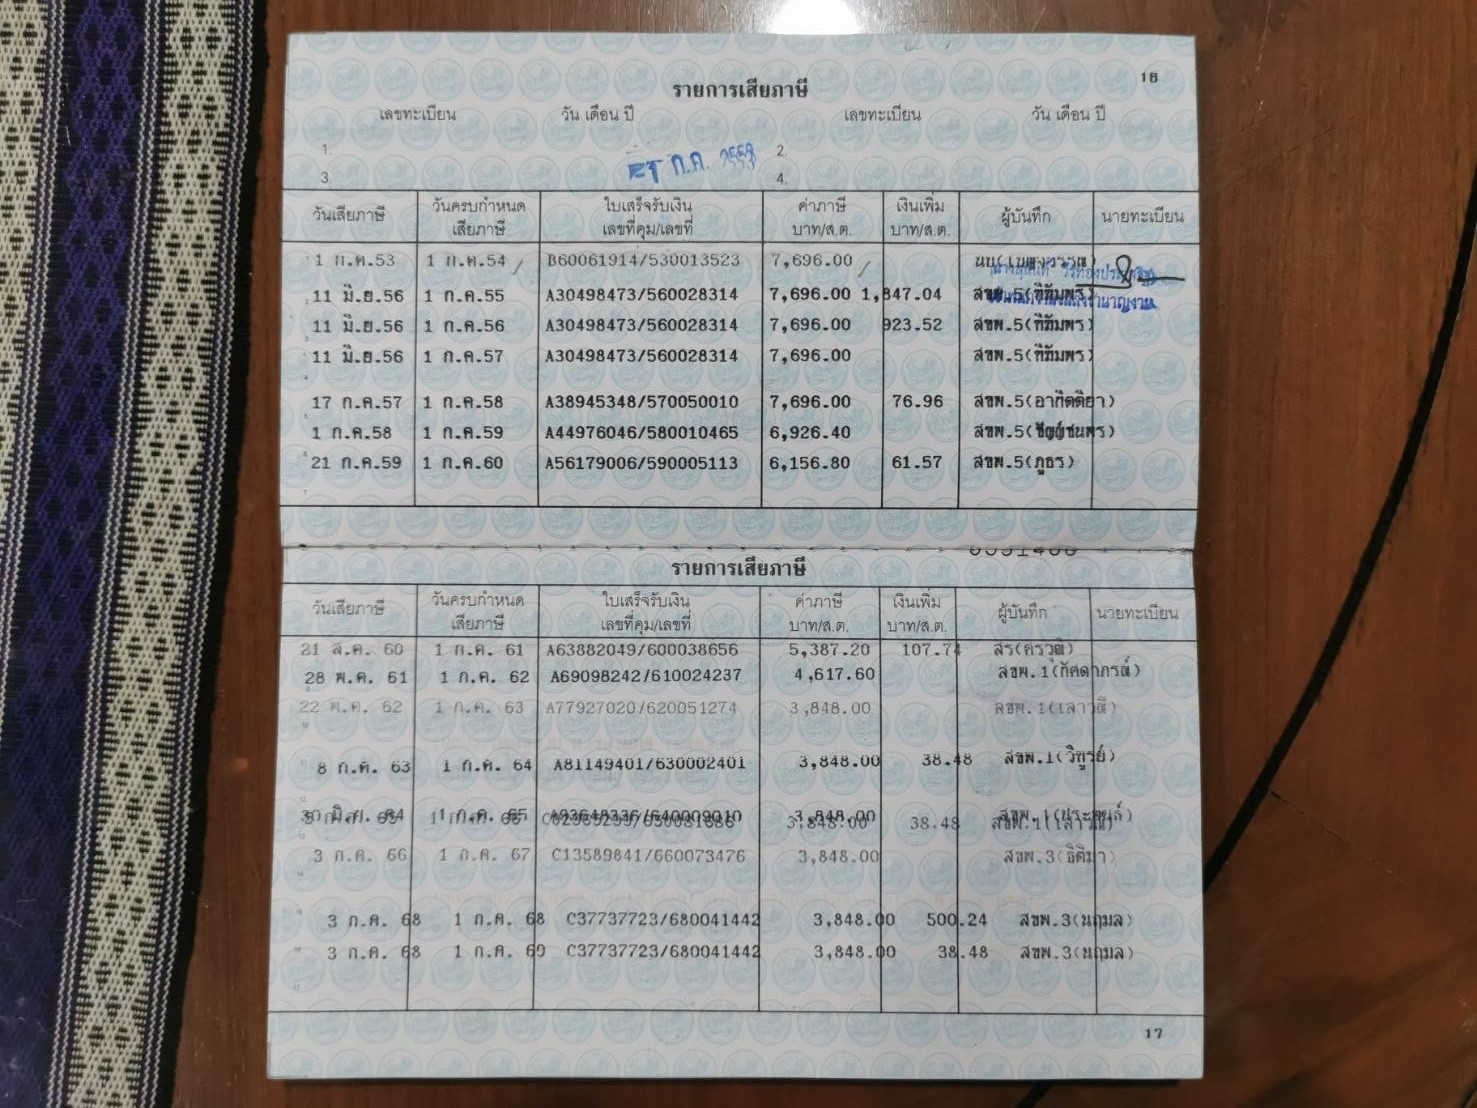 16
รายการเสียภาษี
เลขทะเบียน วัน เดือน ปี เลขทะเบียน วัน เดือน ปี
1. 2.
ก.ค.
3. 4.
วันเสียภาษี วันครบกำหนดเสียภาษี ใบเสร็จรับเงิน เลขที่คุม/เลขที่ ค่าภาษี บาท/ส.ต. เงินเพิ่ม บาท/ส.ต. ผู้บันทึก นายทะเบียน
1 ก.ค.53 1 ก.ค.54 B60061914/530013523 7,696.00
11 มิ.ย.56 1 ก.ค.55 A30498473/560028314 7,696.00 1,847.04 สขพ.5(ทิฆัมพร)
11 มิ.ย.56 1 ก.ค.56 A30498473/560028314 7,696.00 923.52 สขพ.5(ทิฆัมพร)
11 มิ.ย.56 1 ก.ค.57 A30498473/560028314 7,696.00 สขพ.5(ทิฆัมพร)
17 ก.ค.57 1 ก.ค.58 A38945348/570050010 7,696.00 76.96 สขพ.5(อากิตติยา)
1 ก.ค.58 1 ก.ค.59 A44976046/580010465 6,926.40 สขพ.5(
21 ก.ค.59 1 ก.ค.60 A56179006/590005113 6,156.80 61.57 สขพ.5(ภูธร)
รายการเสียภาษี
วันเสียภาษี วันครบกำหนดเสียภาษี ใบเสร็จรับเงิน เลขที่คุม/เลขที่ ค่าภาษี บาท/ส.ต. เงินเพิ่ม บาท/ส.ต. ผู้บันทึก นายทะเบียน
21 ส.ค. 60 1 ก.ค. 61 A63882049/600038656 5,387.20 107.74 สร(ศราวุฒิ)
28 พ.ค. 61 1 ก.ค. 62 A69098242/610024237 4,617.60 สขพ.1(กัศดาภรณ์)
22 พ.ค. 62 1 ก.ค. 63 A77927020/620051274 3,848.00 สขพ.1(เสาวณี)
8 ก.ค. 63 1 ก.ค. 64 A81149401/630002401 3,848.00 38.48 สขพ.1(วิฑูรย์)
30 มิ.ย. 64 1 ก.ค. 65 A93648336/640009010 3,848.00
1 ก.ค. 66 3,848.00 38.48 สขพ.1(เสาวณี)
3 ก.ค. 66 1 ก.ค. 67 C13589841/660073476 3,848.00 สขพ.3(ธิติมา)
3 ก.ค. 68 1 ก.ค. 68 C37737723/680041442 3,848.00 500.24 สขพ.3(นฤมล)
3 ก.ค. 68 1 ก.ค. 69 C37737723/680041442 3,848.00 38.48 สขพ.3(นฤมล)
17